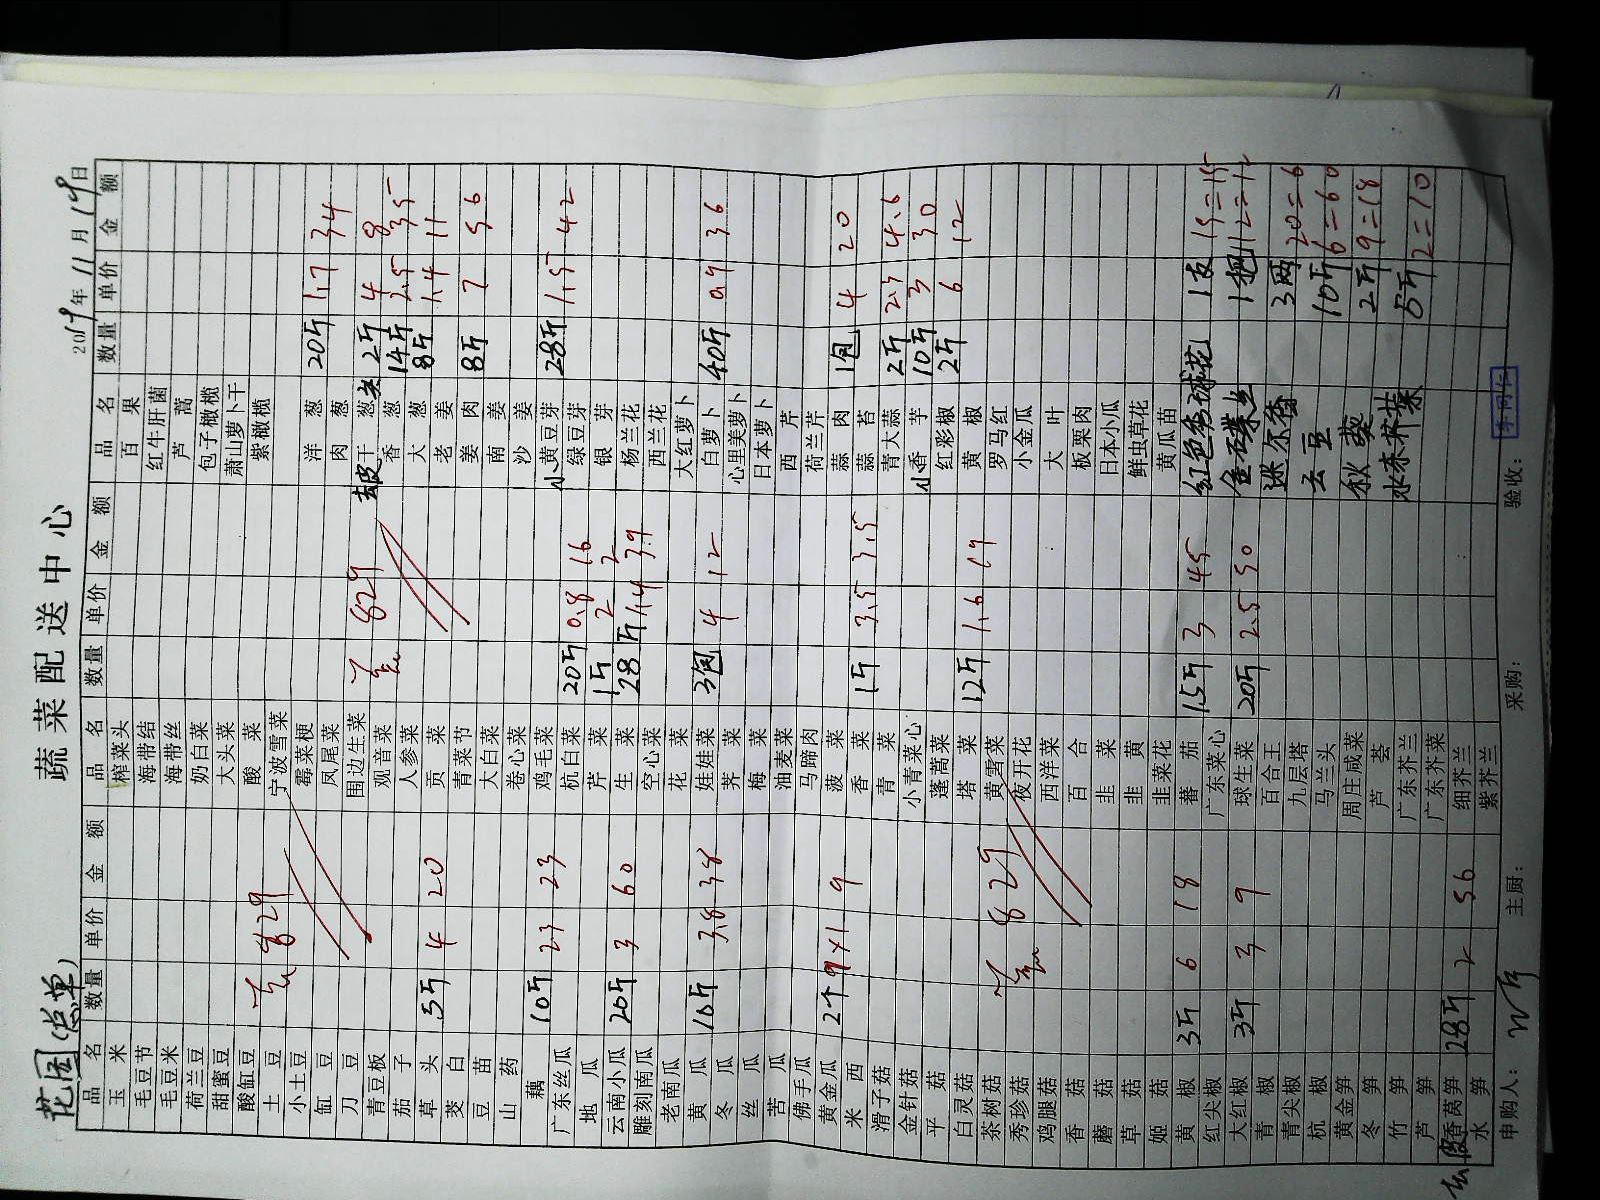 蔬菜配送中心
花园(总单) 2019年11月19日
品名 数量 单价 金额 品名 数量 单价 金额 品名 数量 单价 金额
玉米 榨菜头 百果
毛豆节 海带结 红牛肝菌
毛豆米 海带丝 芦蒿
荷兰豆 奶白菜 包子橄榄
甜蜜豆 大头菜 萧山萝卜干
酸豇豆 酸菜 紫橄榄
土豆 829 宁波雪菜
小土豆 霉菜梗 洋葱 20斤 1.7 34
豇豆 凤尾菜 肉葱
刀豆 围边生菜 829 去皮干葱头 2斤 4 8
青豆板 观音菜 香葱 14斤 2.5 35
茄子 人参菜 大葱 8斤 1.4 11
草头 5斤 4 20 贡菜 老姜
茭白 青菜节 姜肉 8斤 7 56
豆苗 大白菜 南姜
山药 卷心菜 沙姜
藕 10斤 2.3 23 鸡毛菜 小黄豆芽 28斤 1.5 42
广东丝瓜 杭白菜 20斤 0.8 16 绿豆芽
地瓜 芹菜 1斤 2 2 银芽
云南小瓜 20斤 3 60 生菜 28斤 1.4 39 杨兰花
雕刻南瓜 空心菜 西兰花
老南瓜 花菜 大红萝卜
黄瓜 10斤 3.8 38 娃娃菜 3包 4 12 白萝卜 40斤 0.9 36
冬瓜 荠菜 心里美萝卜
丝瓜 梅菜 日本萝卜
苦瓜 油麦菜 西芹
佛手瓜 马蹄肉 荷兰芹
黄金瓜 2个 9×1 9 菠菜 蒜肉 1包 4 20
米西 香菜 1斤 3.5 3.5 蒜苔
滑子菇 青菜 青大蒜 2斤 2.3 4.6
金针菇 小青菜心 小香芋 10斤 3 30
平菇 蓬蒿菜 红彩椒 2斤 6 12
白灵菇 塔菜 12斤 1.6 19 黄椒
茶树菇 829 黄雪菜 罗马红
秀珍菇 夜开花 小金瓜
鸡腿菇 西洋菜 大叶
香菇 百合 板栗肉
蘑菇 韭菜 日本小瓜
草菇 韭黄 鲜虫草花
姬菇 韭菜花 黄瓜苗
黄椒 3斤 6 18 番茄 15斤 3 45 红色绣球花 1支 15=15
红尖椒 广东菜心 金碟 1把 12=12
大红椒 3斤 3 9 球生菜 20斤 2.5 50 迷尔香 3两 20=6
青椒 百合王
青尖椒 九层塔 云豆 10斤 6=60
杭椒 马兰头
黄金笋 周庄咸菜 秋葵 2斤 9=18
冬笋 芦荟
竹笋 广东芥兰 水东芥菜 5斤 2=10
芦笋 广东芥菜
去皮香莴笋 28斤 2 56 细芥兰
水笋 紫芥兰
申购人： 主厨： 采购： 验收：